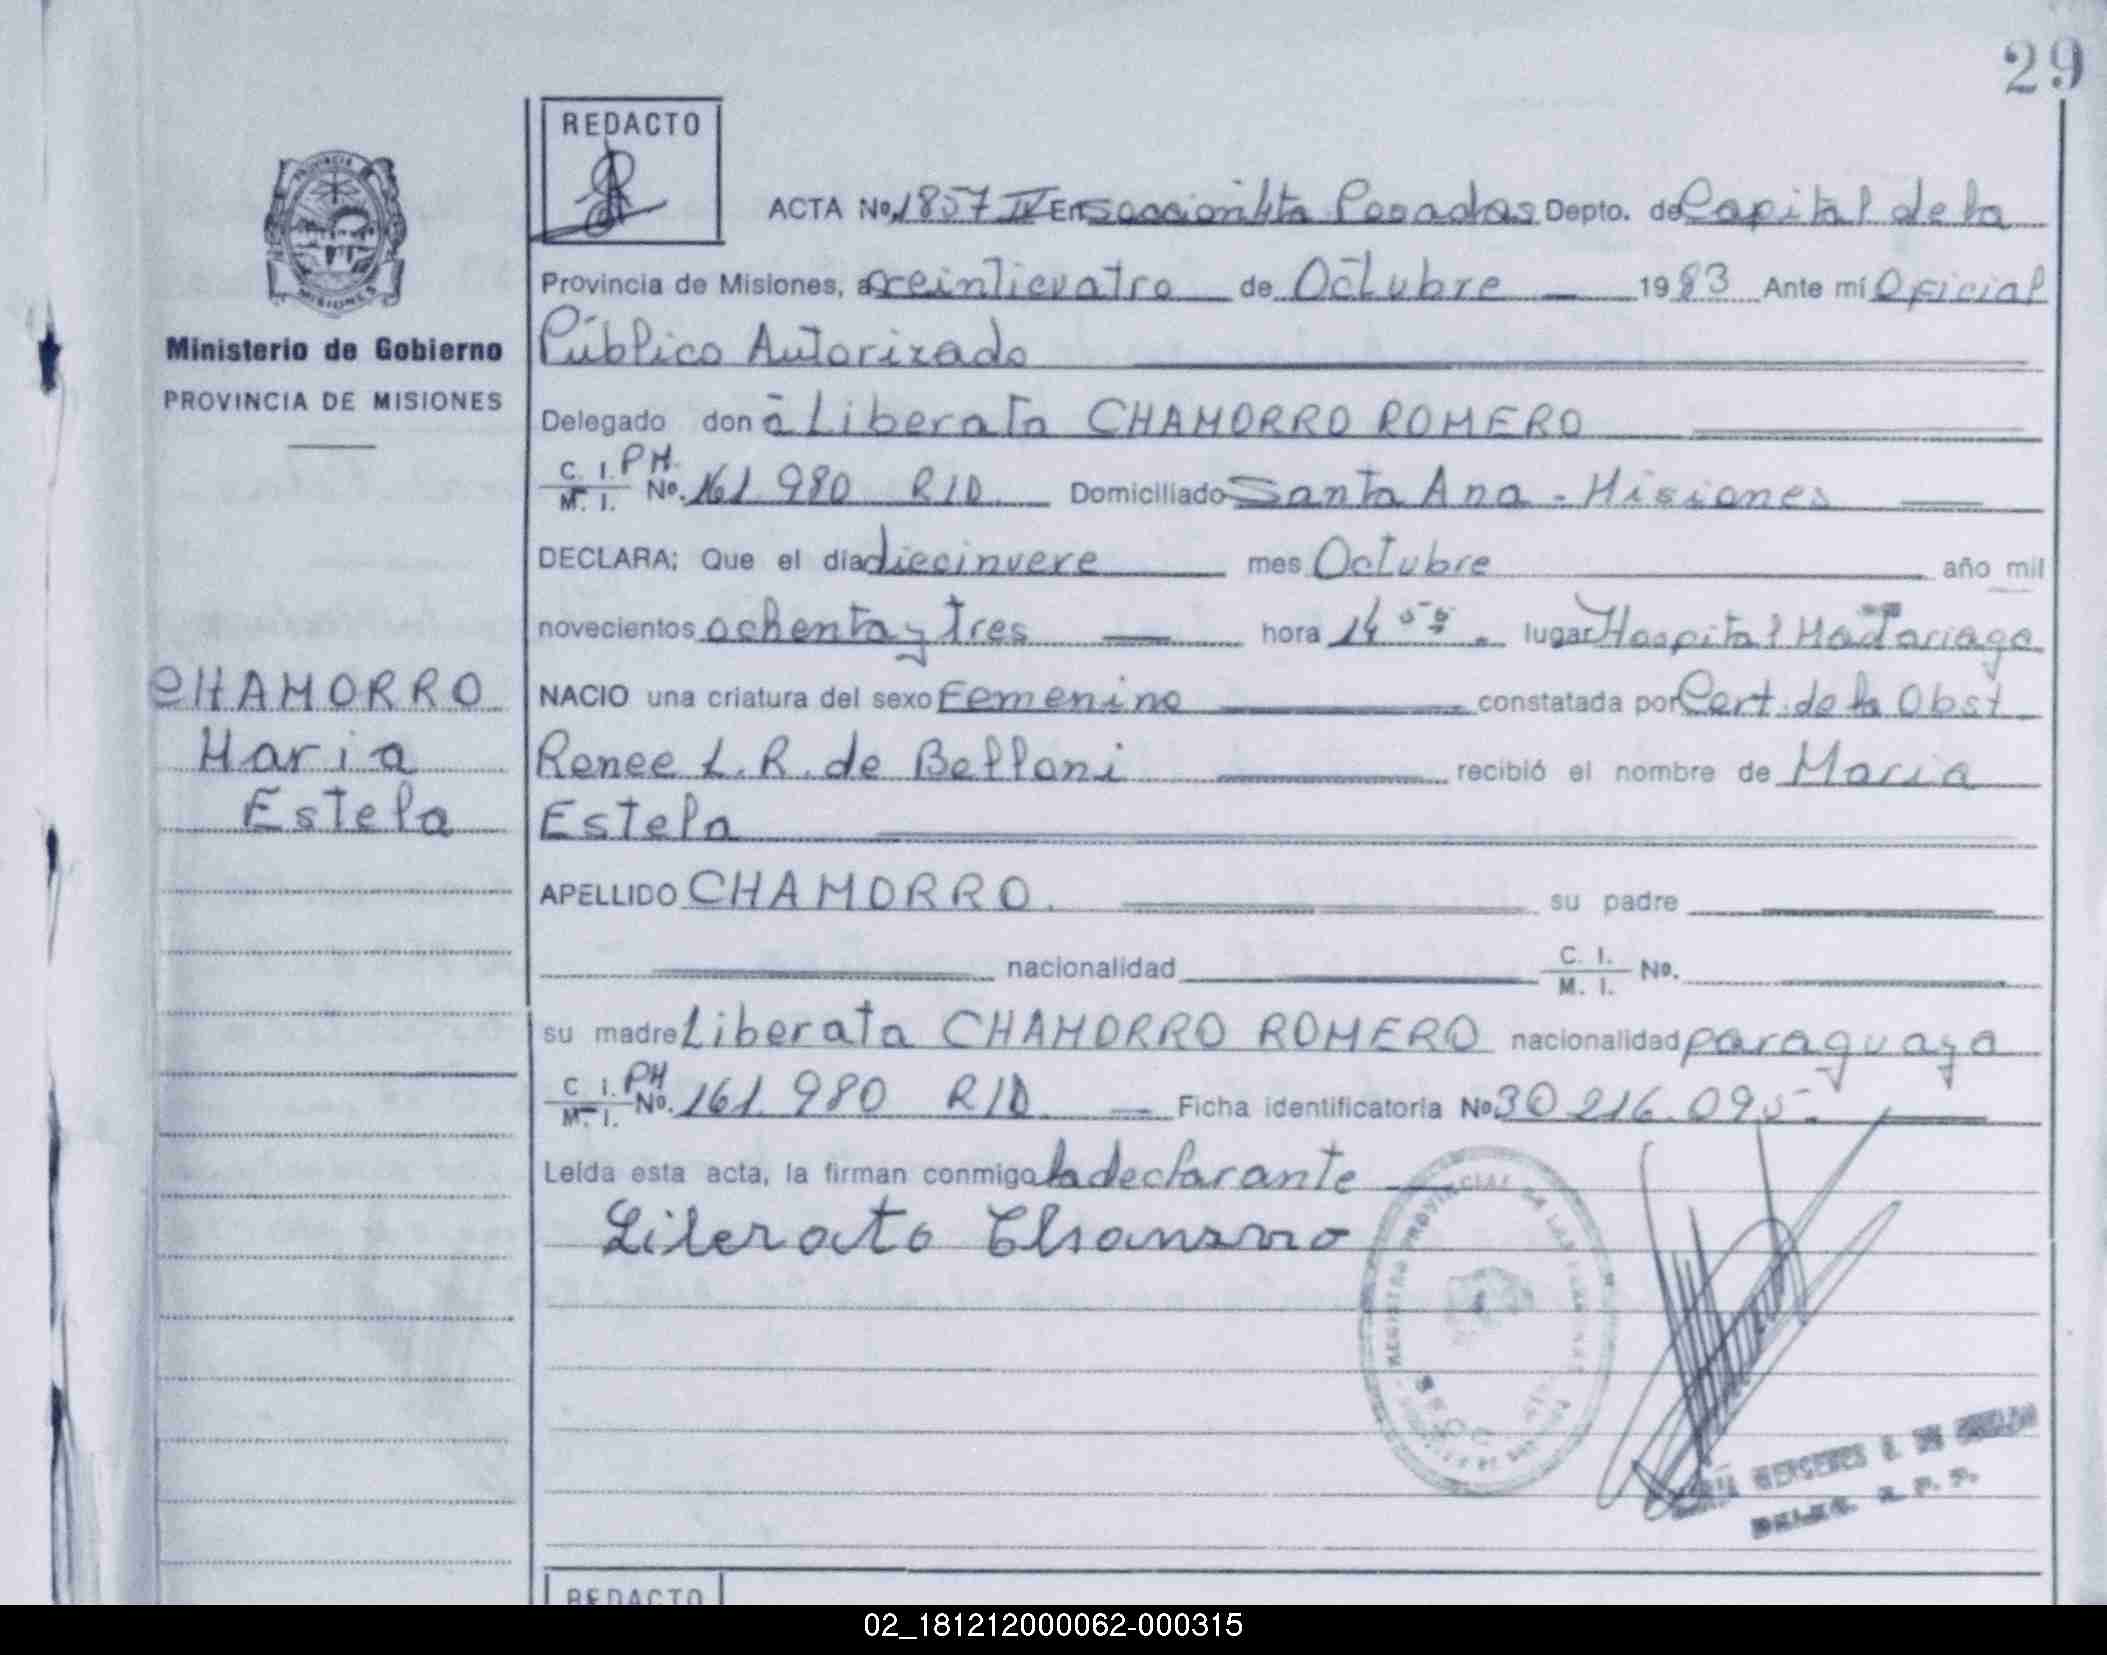 29
REDACTO
PROVINCIA
MISIONES
Ministerio de Gobierno
PROVINCIA DE MISIONES
CHAMORRO
Maria
Estela
ACTA No. 1857 IV En Seccion 1ta Posadas Depto. de Capital de la
Provincia de Misiones, a veinticuatro de Octubre 1983 Ante mí Oficial
Público Autorizado
Delegado don a Liberata CHAMORRO ROMERO
C. I. PH.
M. I. No. 161.980 RID Domiciliado Santa Ana - Misiones
DECLARA; Que el día diecinueve mes Octubre año mil
novecientos ochenta y tres hora 14 55 lugar Hospital Madariaga
NACIO una criatura del sexo Femenino constatada por Cert. de la Obst
Renee L. R. de Belloni recibió el nombre de Maria
Estela
APELLIDO CHAMORRO. su padre
nacionalidad C. I.
M. I. No.
su madre Liberata CHAMORRO ROMERO nacionalidad paraguaya
C. I. PH
M. I. No. 161.980 RID Ficha identificatoria No 30 216.095.
Leída esta acta, la firman conmigo la declarante
Liberato Chamorro
REGISTRO PROVINCIAL DE LAS PERSONAS
MERCEDES
R. P. P.
REDACTO
02_181212000062-000315